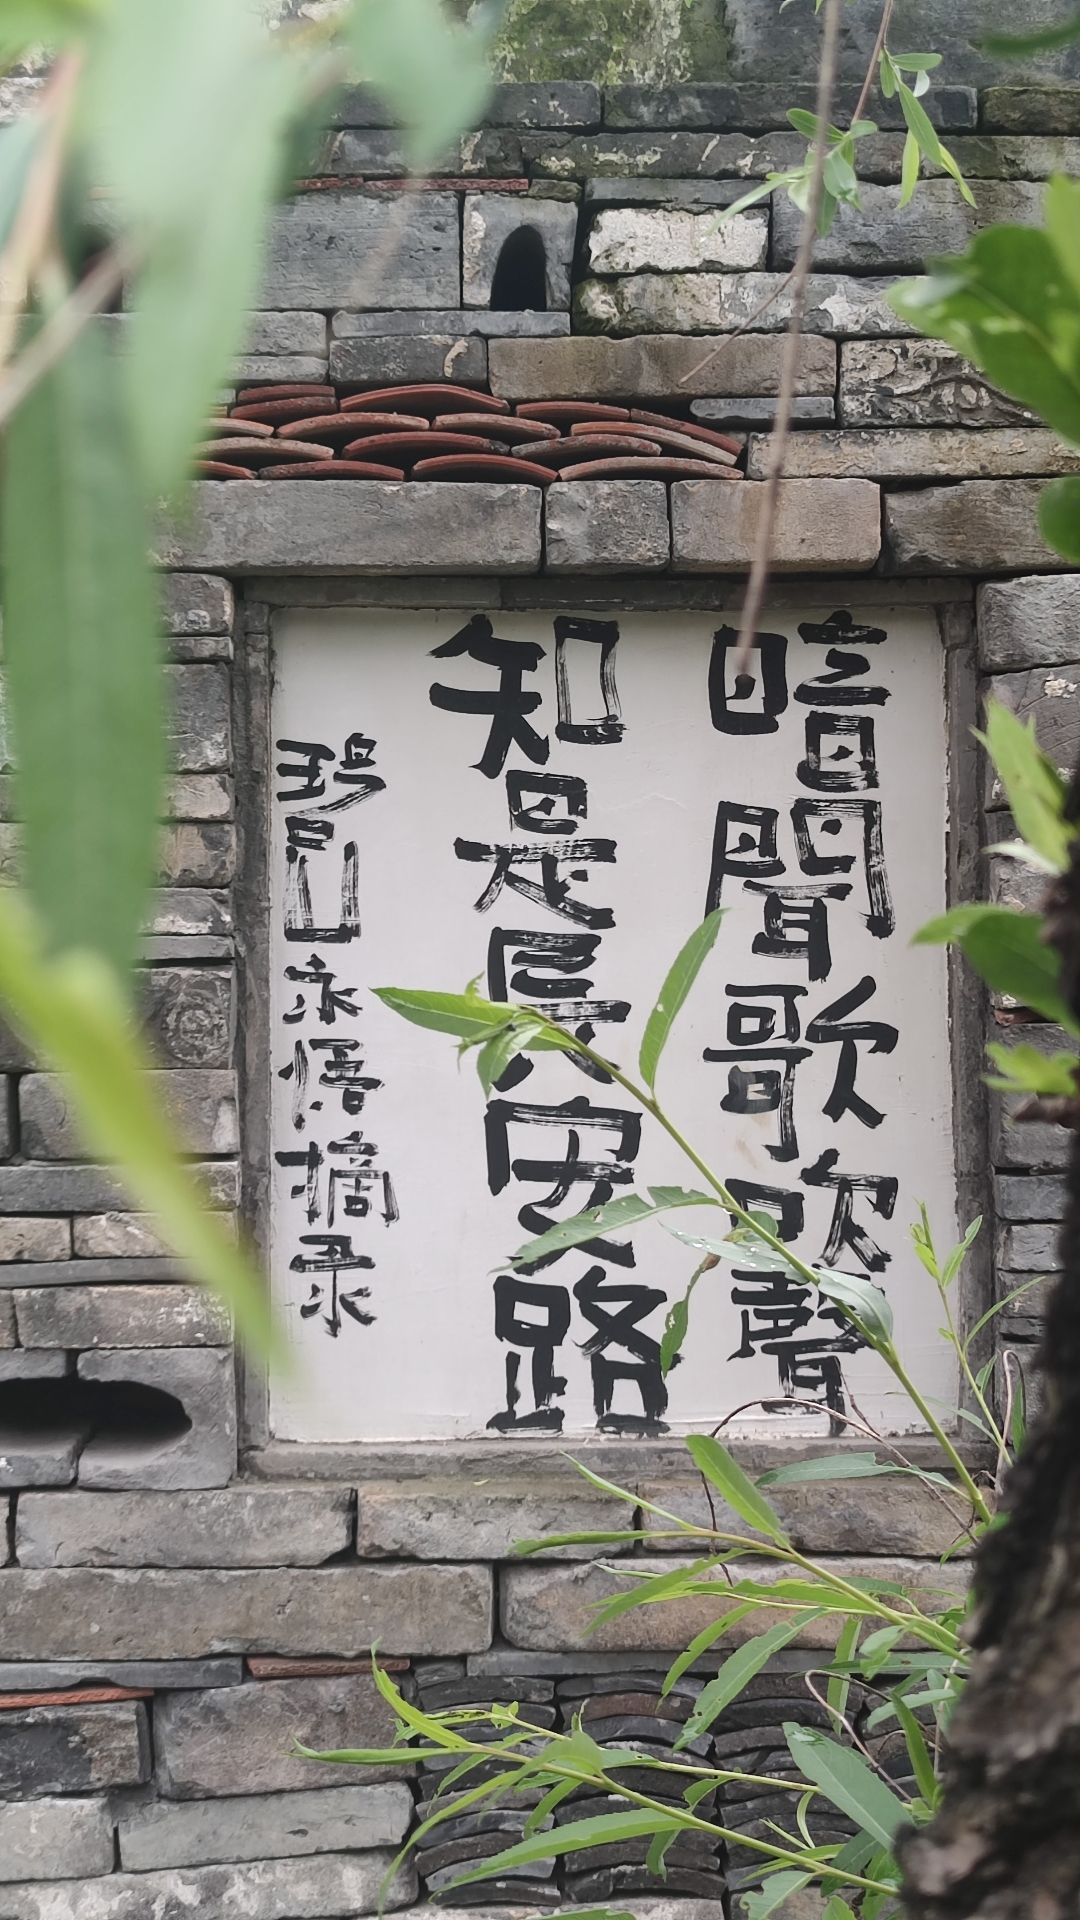 暗聞歌吹聲
知是長安路
碧山永悟摘录